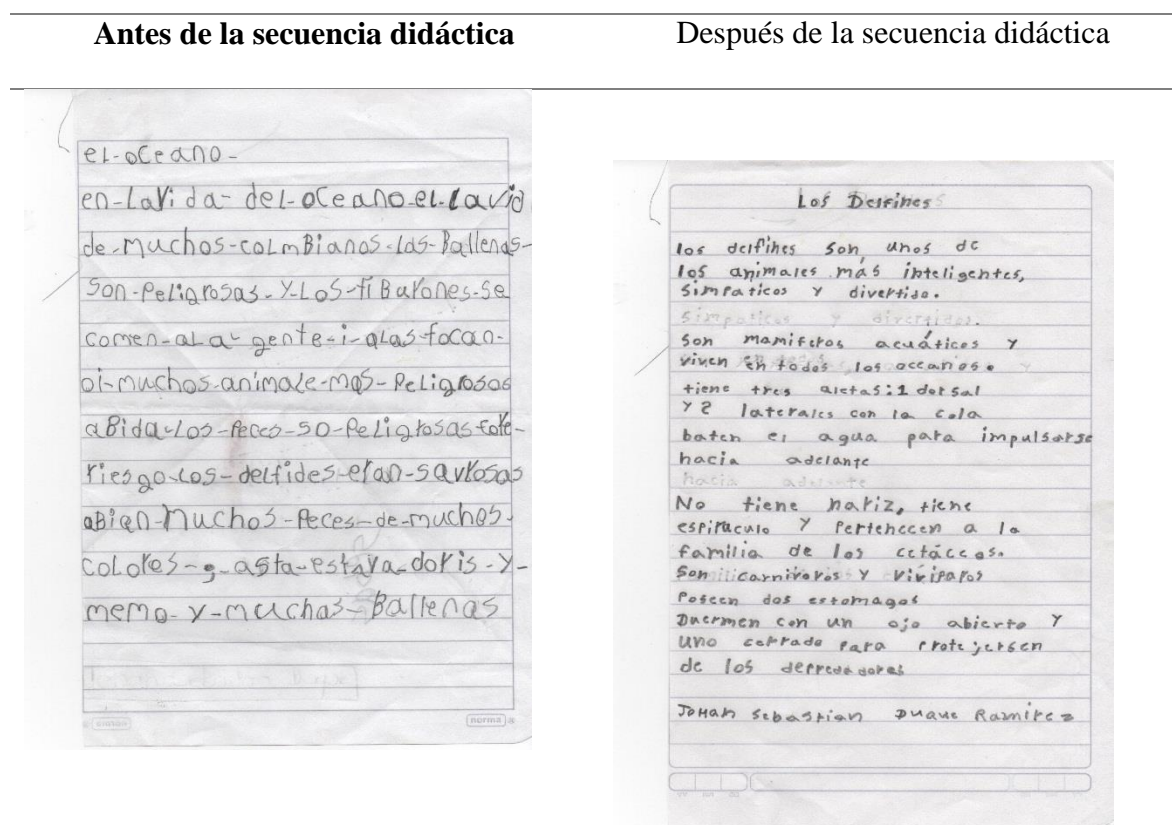 Antes de la secuencia didáctica
Después de la secuencia didáctica
el-oceano-
en-LaVida-del-oceano-el-lavid
de-muchos-colmBianos-las-Ballenas-
son-Peligrosas-Y-Los-tiBurones-se
comen-al a-gente-i-alas-focan-
oi-muchos-animale-mas-Peligrosos
aBida-Los-Peces-so-Peligrosas
riesgo-los-delfides-eran-savrosas
aBian-muchos-Peces-de-muchos-
coLores-,-asta-estava-doris-y-
memo-y-muchas-Ballenas
norma
Los Delfines
los delfines son unos de
los animales más inteligentes,
simpaticos Y divertido.
simpaticos y divertidos.
son mamiferos acuáticos Y
viven en todos los occanos.
tiene tres aletas:1 dorsal
Y 2 laterales con la cola
baten el agua para impulsarse
hacia adelante
hacia adelante
No tiene nariz, tiene
espiraculo Y Pertenecen a la
familia de los cetáceos.
Son carnivoros Y viviparos
Poseen dos estomagos
Duermen con un ojo abierto Y
uno cerrado para protejersen
de los depredadores
Johan Sebastian Duque Ramirez